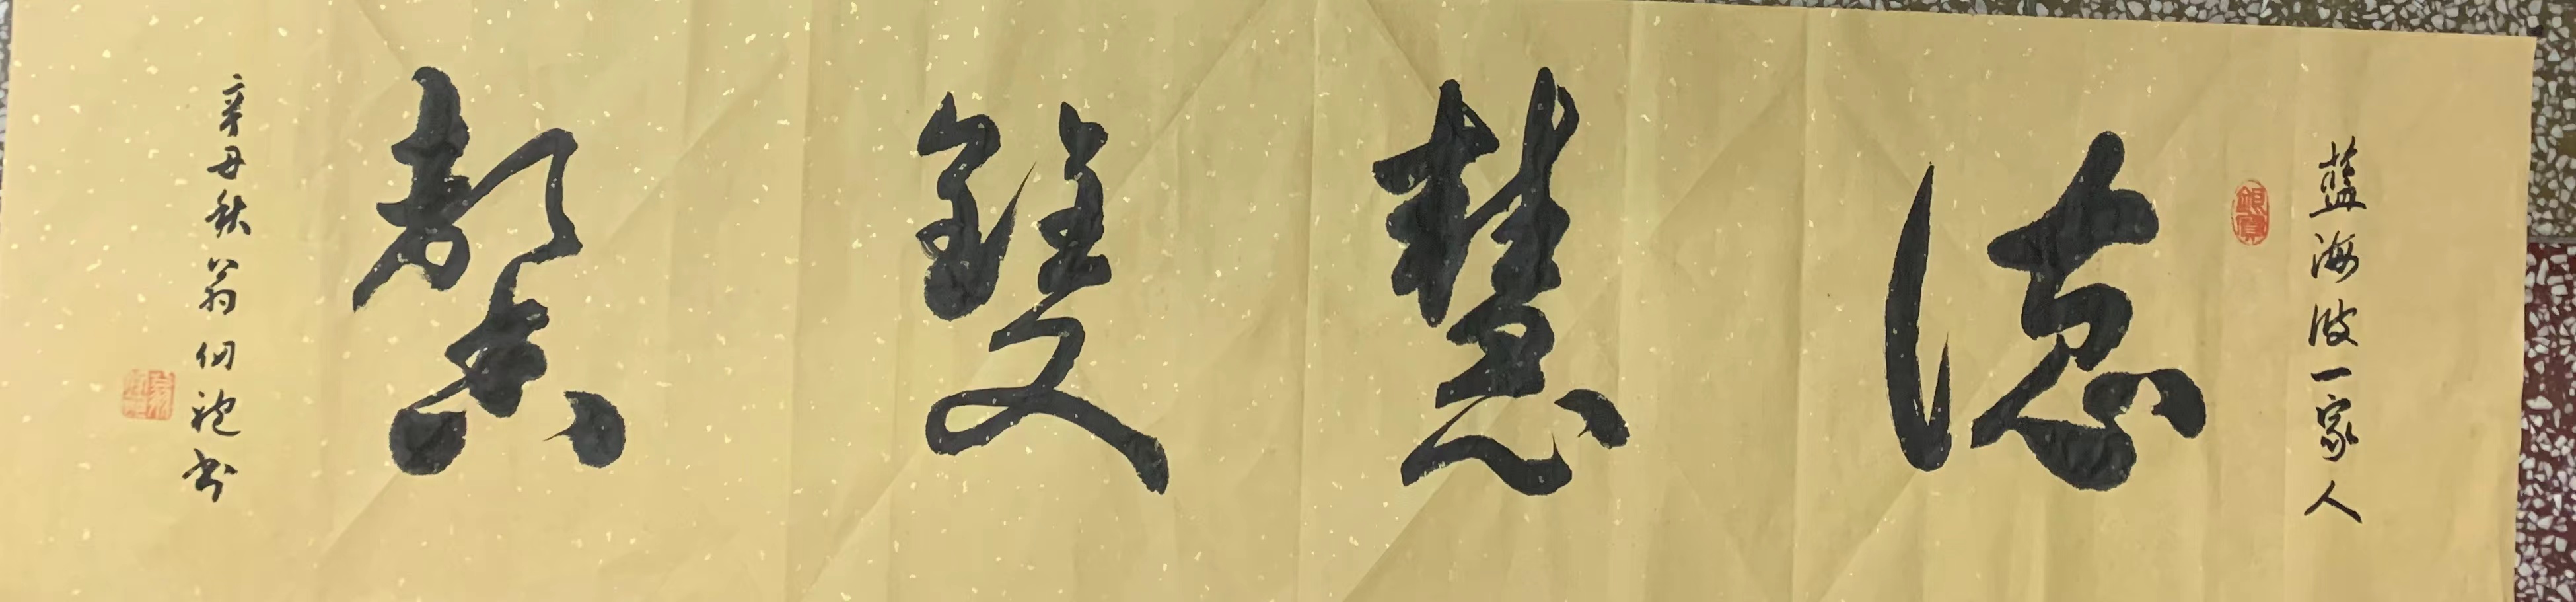 藍海波一家人
德慧雙馨
辛丑秋翁仞袍书